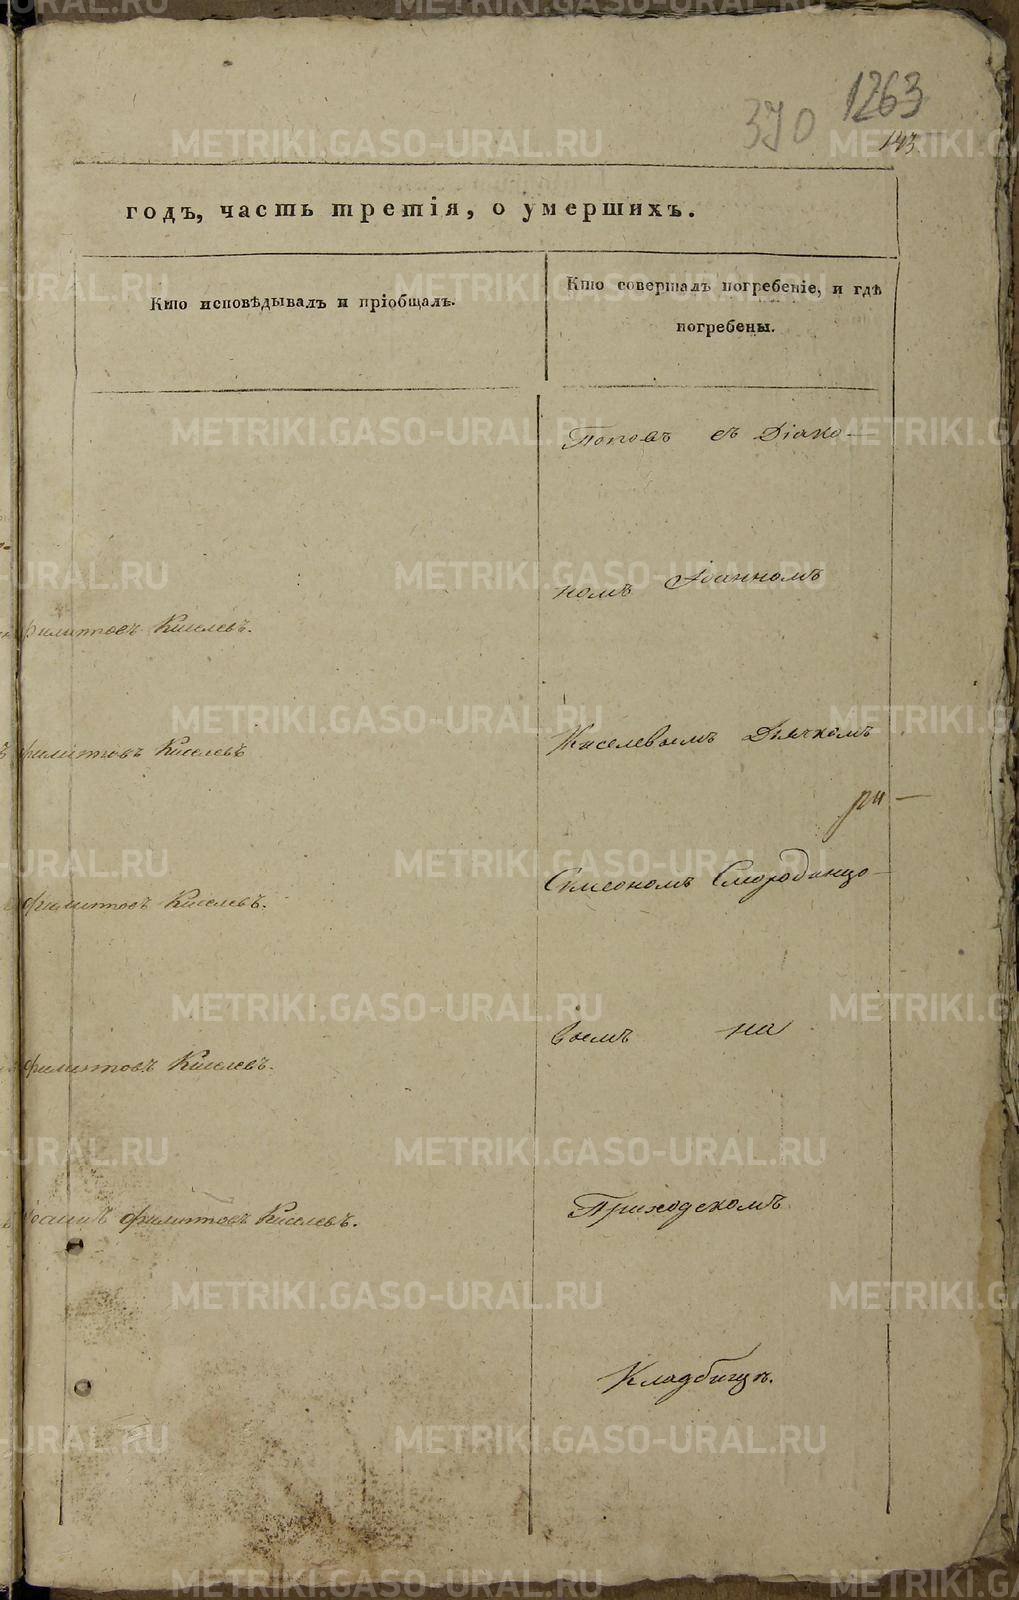 1263
370
143
годъ, часть третія, о умершихъ.
Кто исповѣдывалъ и пріобщалъ.
Кто совершалъ погребеніе, и гдѣ
погребены.
Поповъ съ Діако-
номъ Іоанномъ
Филиповъ Киселевъ.
Киселевымъ Дьячкомъ
Филиповъ Киселевъ
ри-
Симеономъ Смородинцо-
Филиповъ Киселевъ.
вымъ на
Филиповъ Киселевъ.
Приходскомъ
Іоаннъ Филиповъ Киселевъ.
Кладбищѣ.
METRIKI.GASO-URAL.RU